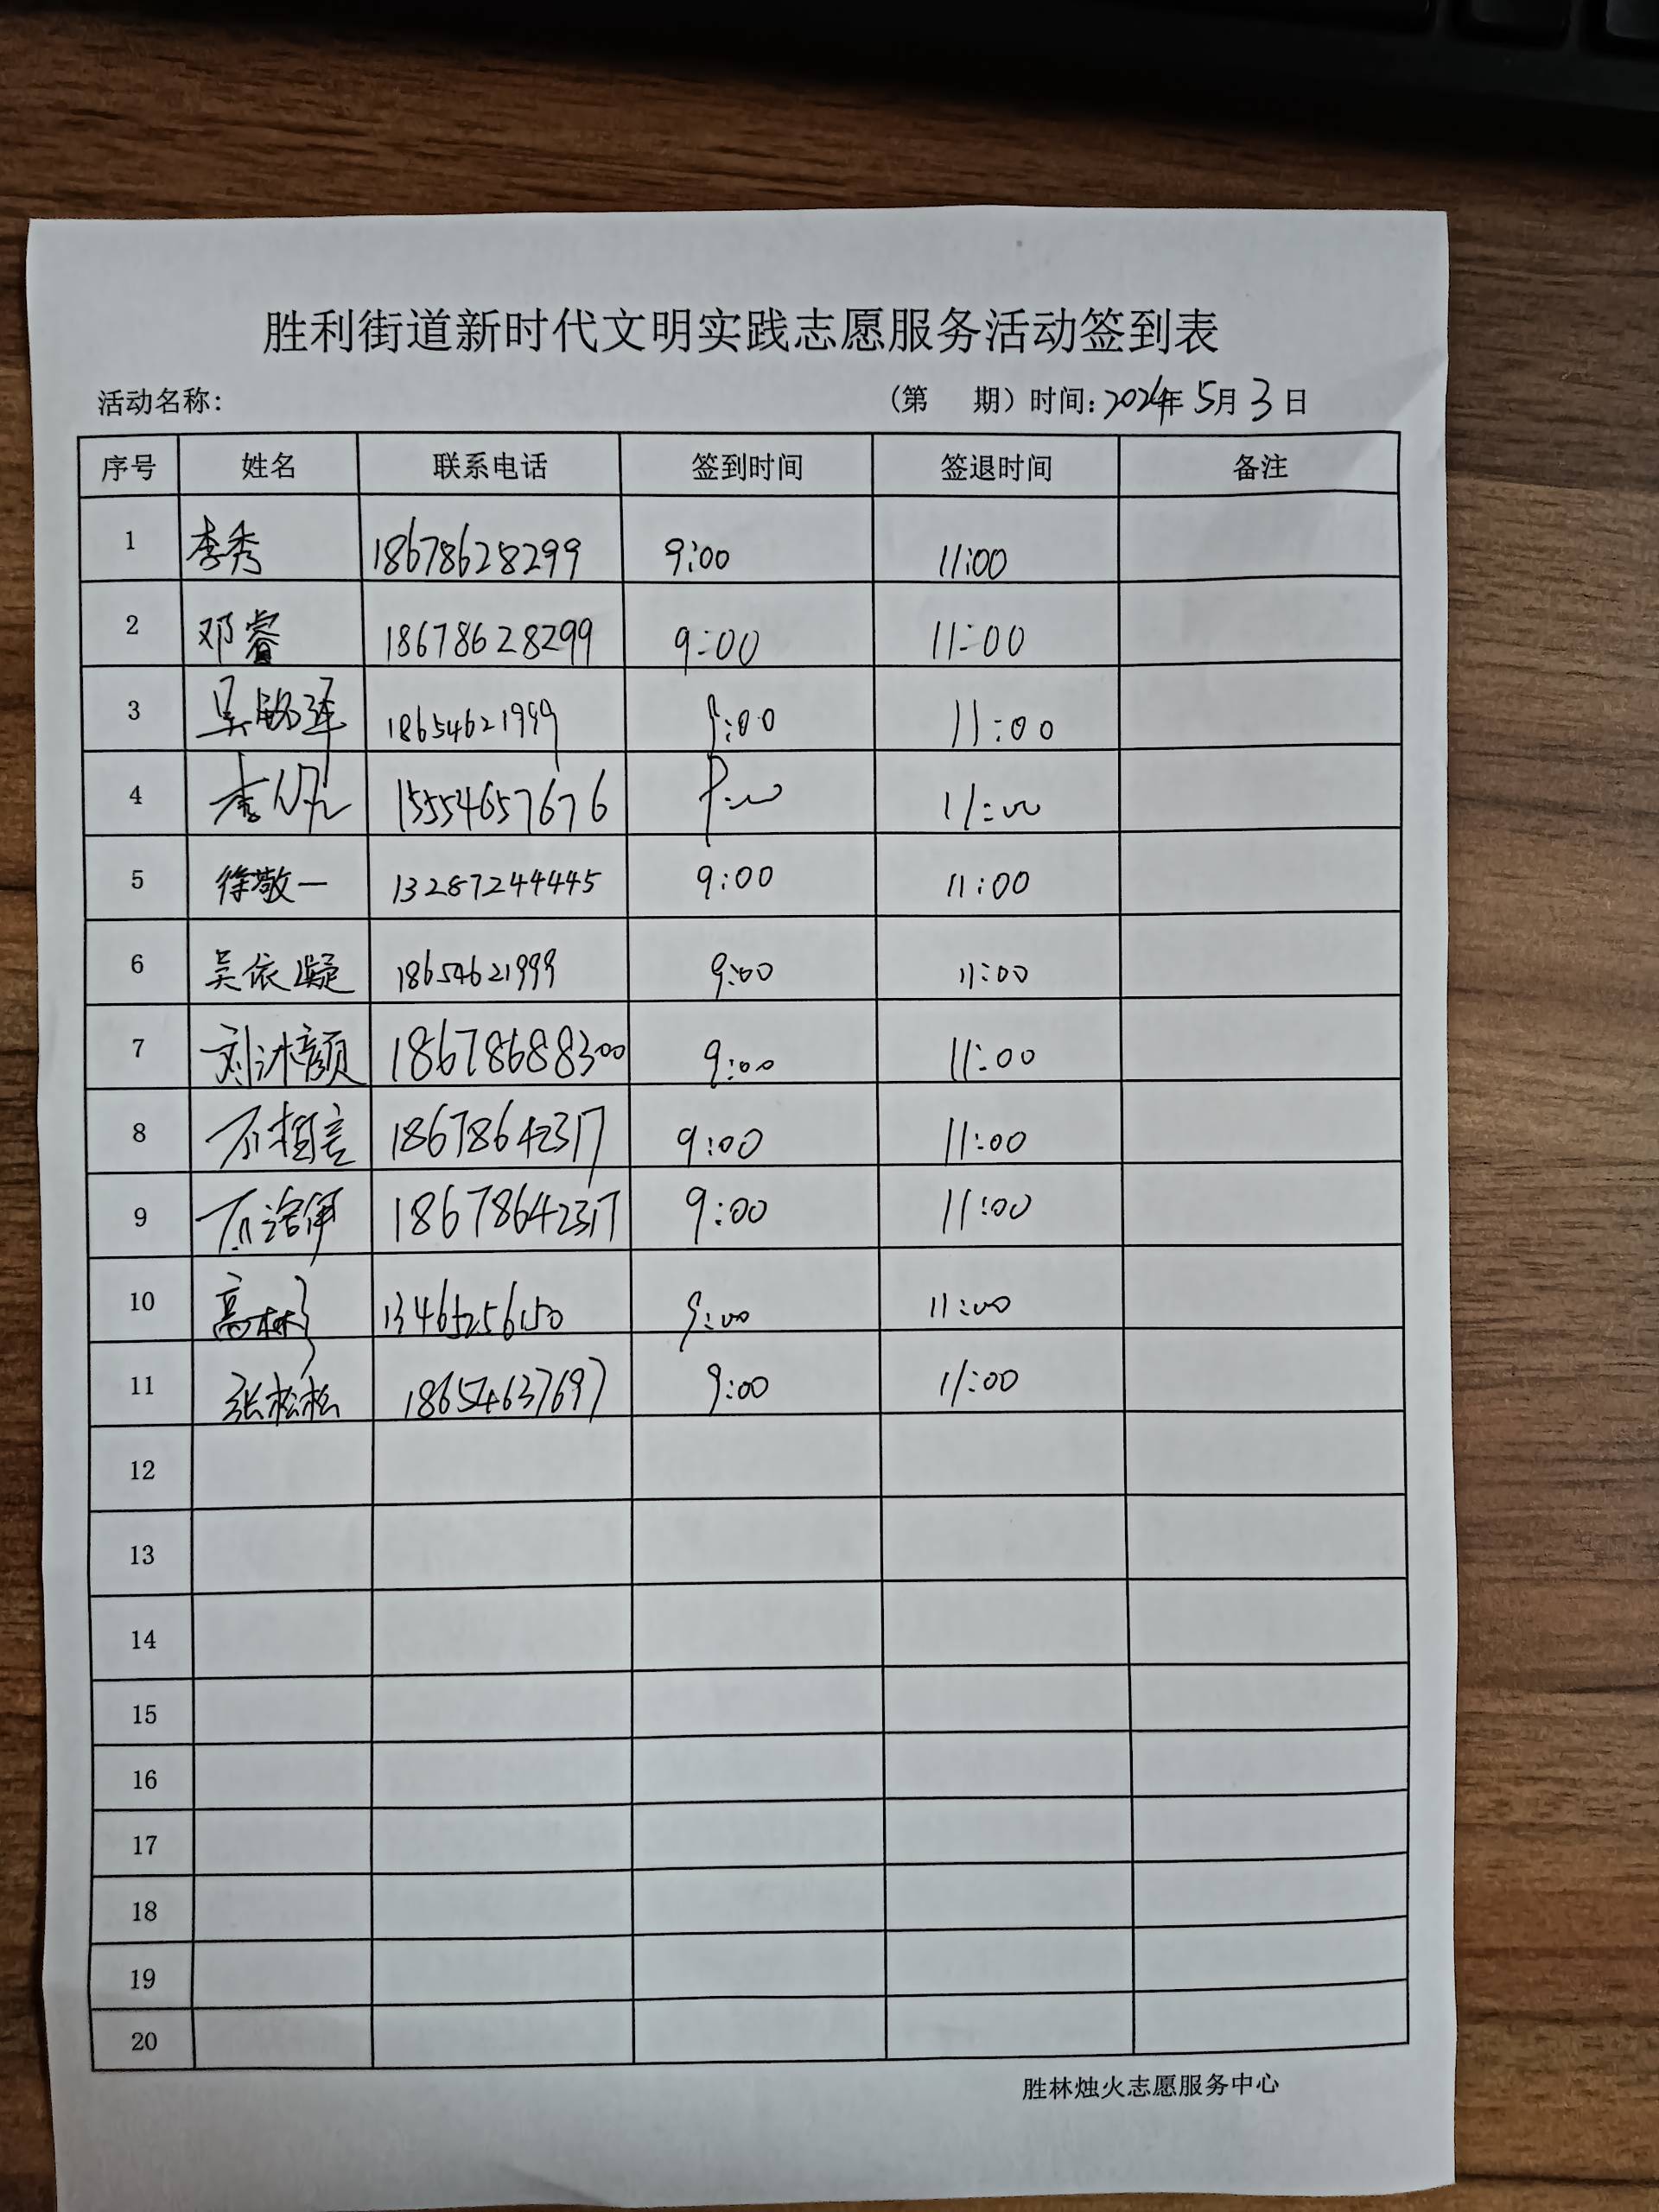 胜利街道新时代文明实践志愿服务活动签到表
活动名称: (第 期) 时间: 2024年 5月 3日
序号 姓名 联系电话 签到时间 签退时间 备注
1 李秀 18678628299 9:00 11:00
2 邓睿 18678628299 9:00 11:00
3 吴 18654621999 9:00 11:00
4 李 15554657676 9:00 11:00
5 徐敬一 13287244445 9:00 11:00
6 吴依凝 18654621999 9:00 11:00
7 刘沐颜 18678688300 9:00 11:00
8 18678642317 9:00 11:00
9 18678642317 9:00 11:00
10 高 13465256150 9:00 11:00
11 张松松 18654637697 9:00 11:00
12
13
14
15
16
17
18
19
20
胜林烛火志愿服务中心